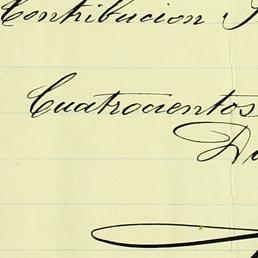 Contribucion
Cuatrocientos